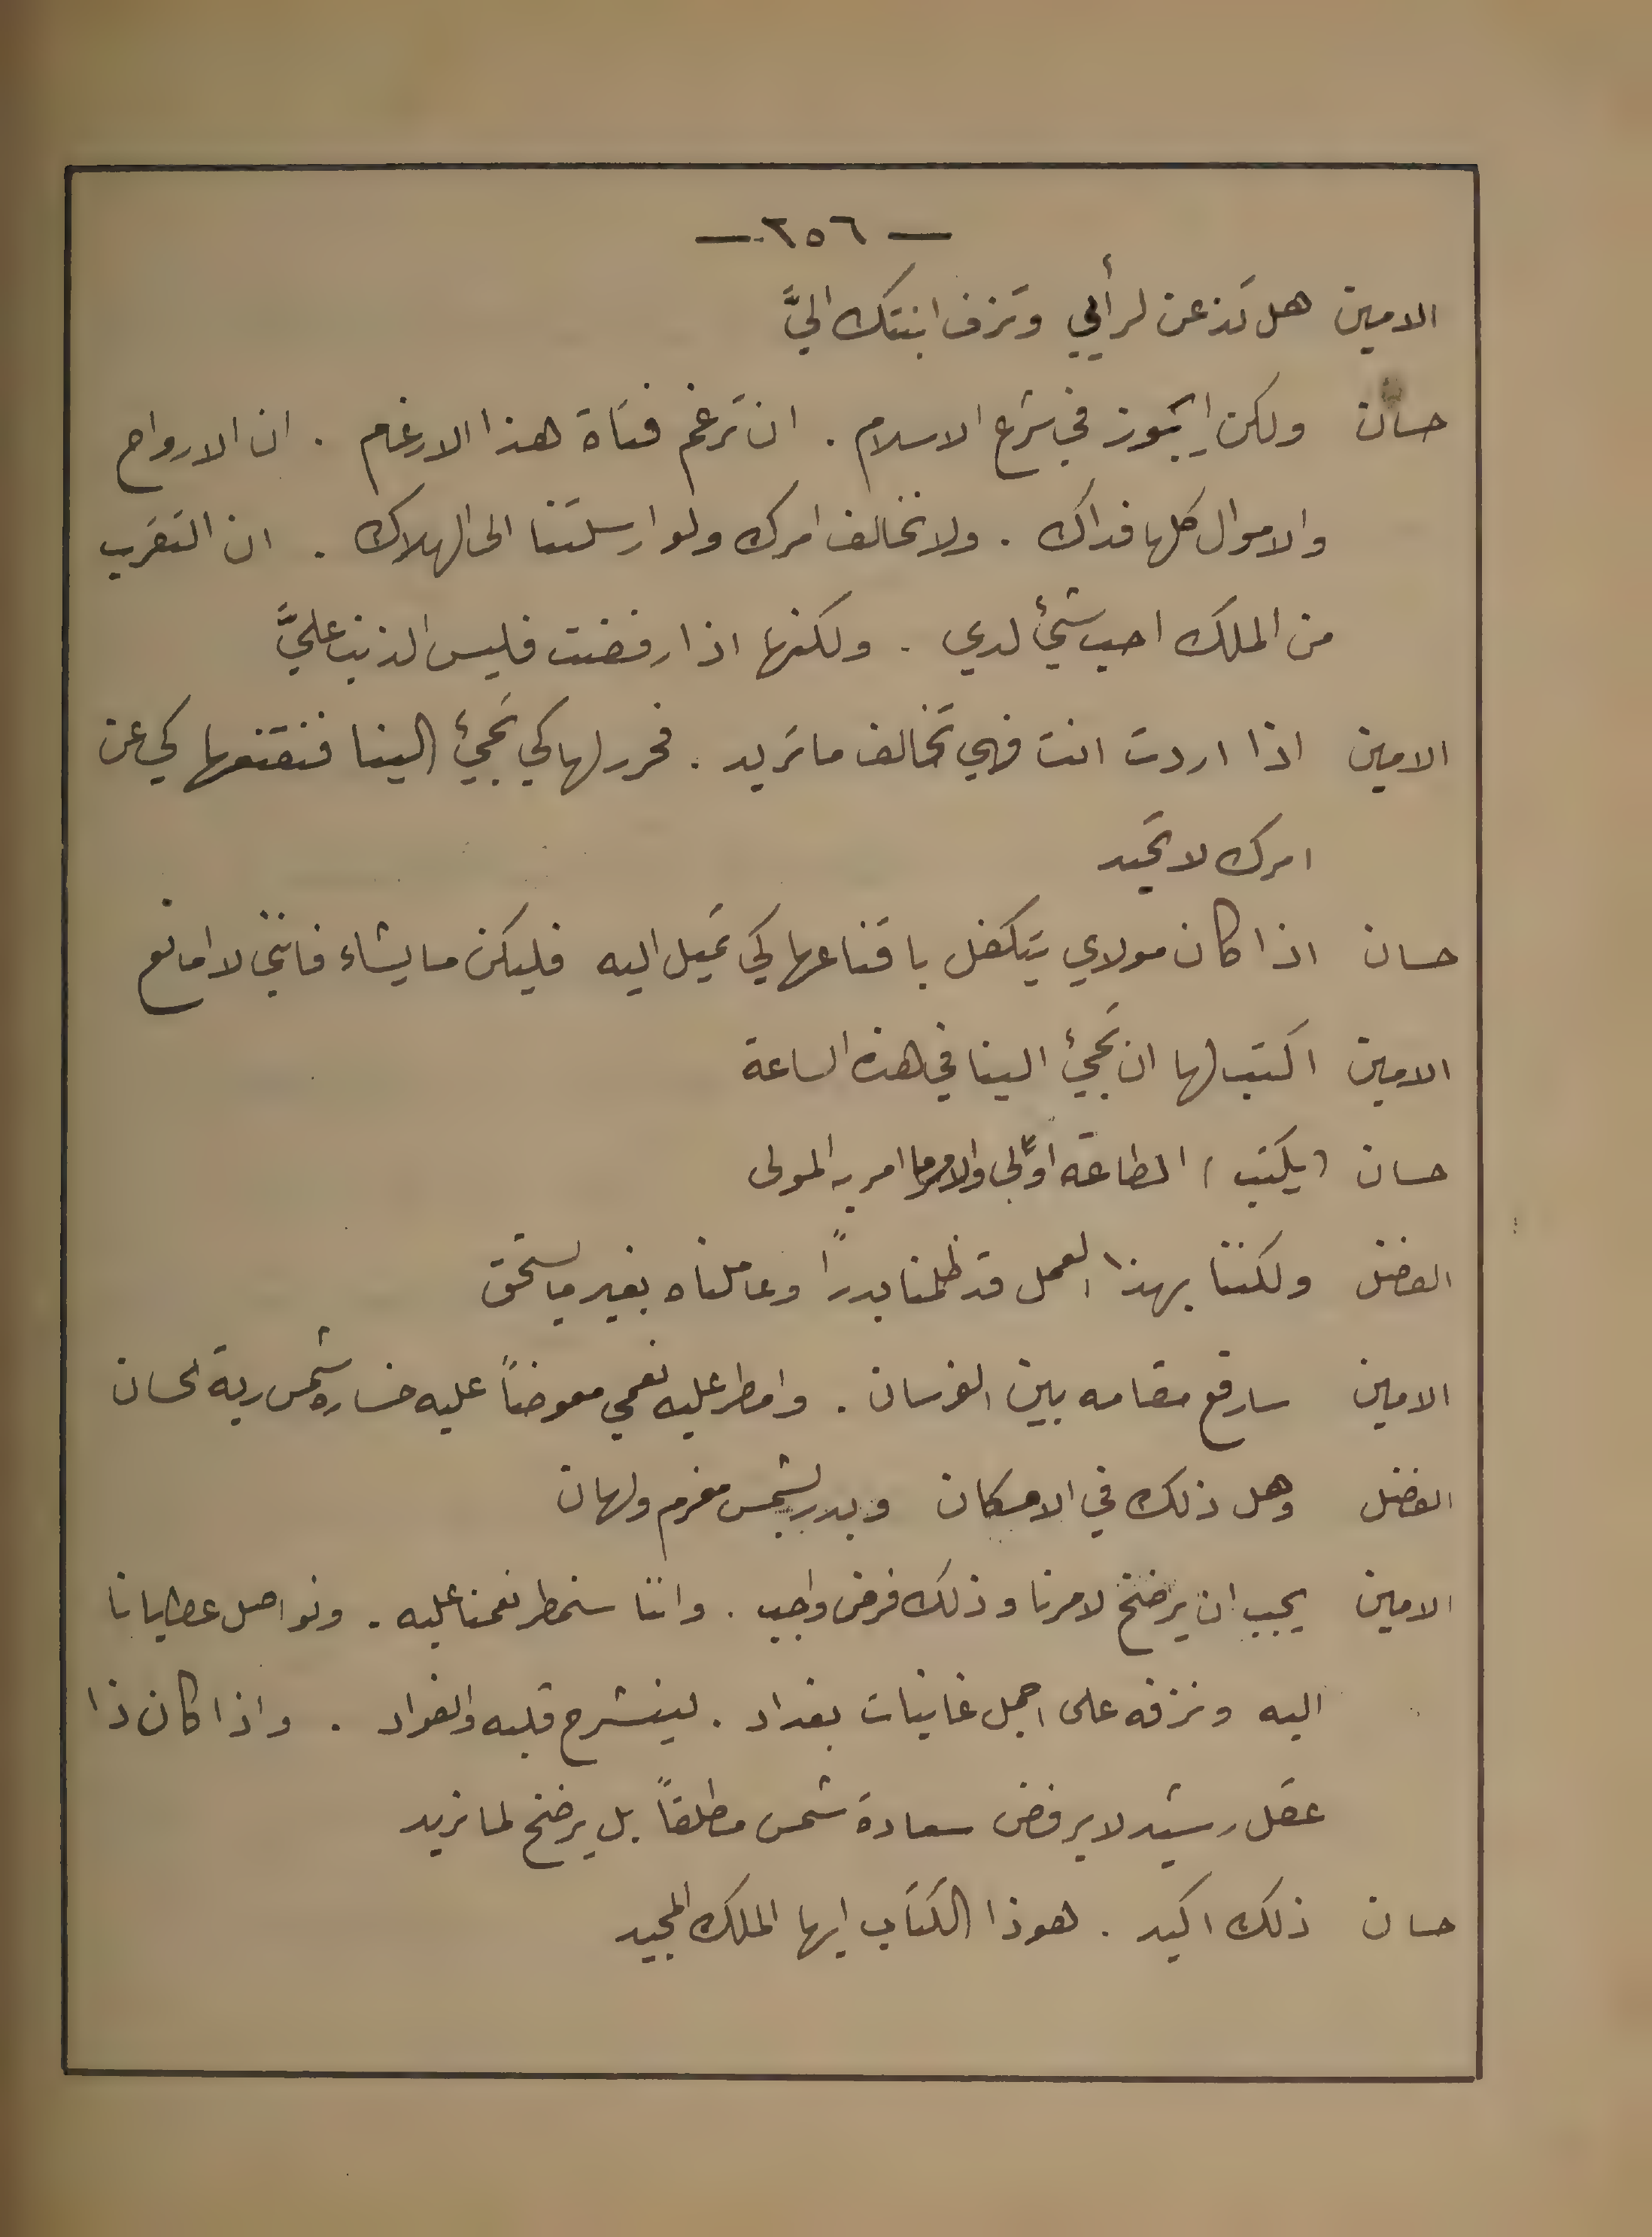 — ٢٥٦ —
الامين هل تذعن لرأيي وتزف ابنتك اليَّ
حسان ولكن ايجوز في شرع الاسلام . ان ترغم فتاة هذا الارغام . ان الارواح
والاموال كلها فداك . ولا نخالف امرك ولو ارسلتنا الى الهلاك . ان التقرب
من الملك احب شيئ لدي . ولكنها اذا رفضت فليس الذنب عليَّ
الامين اذا اردت انت فهي تخالف ما تريد . فحرر لها كي تجيئ الينا فنقنعها كي عن
امرك لا تحيد
حسان اذا كان مولاي يتكفل باقناعها كي تميل اليه فليكن ما يشاء فانني لا امانع
الامين اكتب لها ان تجيئ الينا في هذه الساعة
حسان (يكتب) الطاعة اولى والامر ما امر به المولى
الفضل ولكننا بهذا العمل قد ظلمنا بدراً وعاملناه بغير ما يستحق
الامين سارفع مقامه بين الفرسان . وامطر عليه نعمي معوضاً عليه خسارة شمس ربة الحسان
الفضل وهل ذلك في الامكان وبدر بشمس مغرم ولهان
الامين يجب ان يرضخ لامرنا وذلك فرض واجب . واننا سنمطر نعمنا عليه . ونواصل عطايانا
اليه ونزفه على اجمل غانيات بغداد . لينشرح قلبه والفواد . واذا كان ذا
عقل رشيد لا يرفض سعادة شمس مطلقاً بل يرضخ لما نريد
حسان ذلك اكيد . هوذا الكتاب ايها الملك المجيد